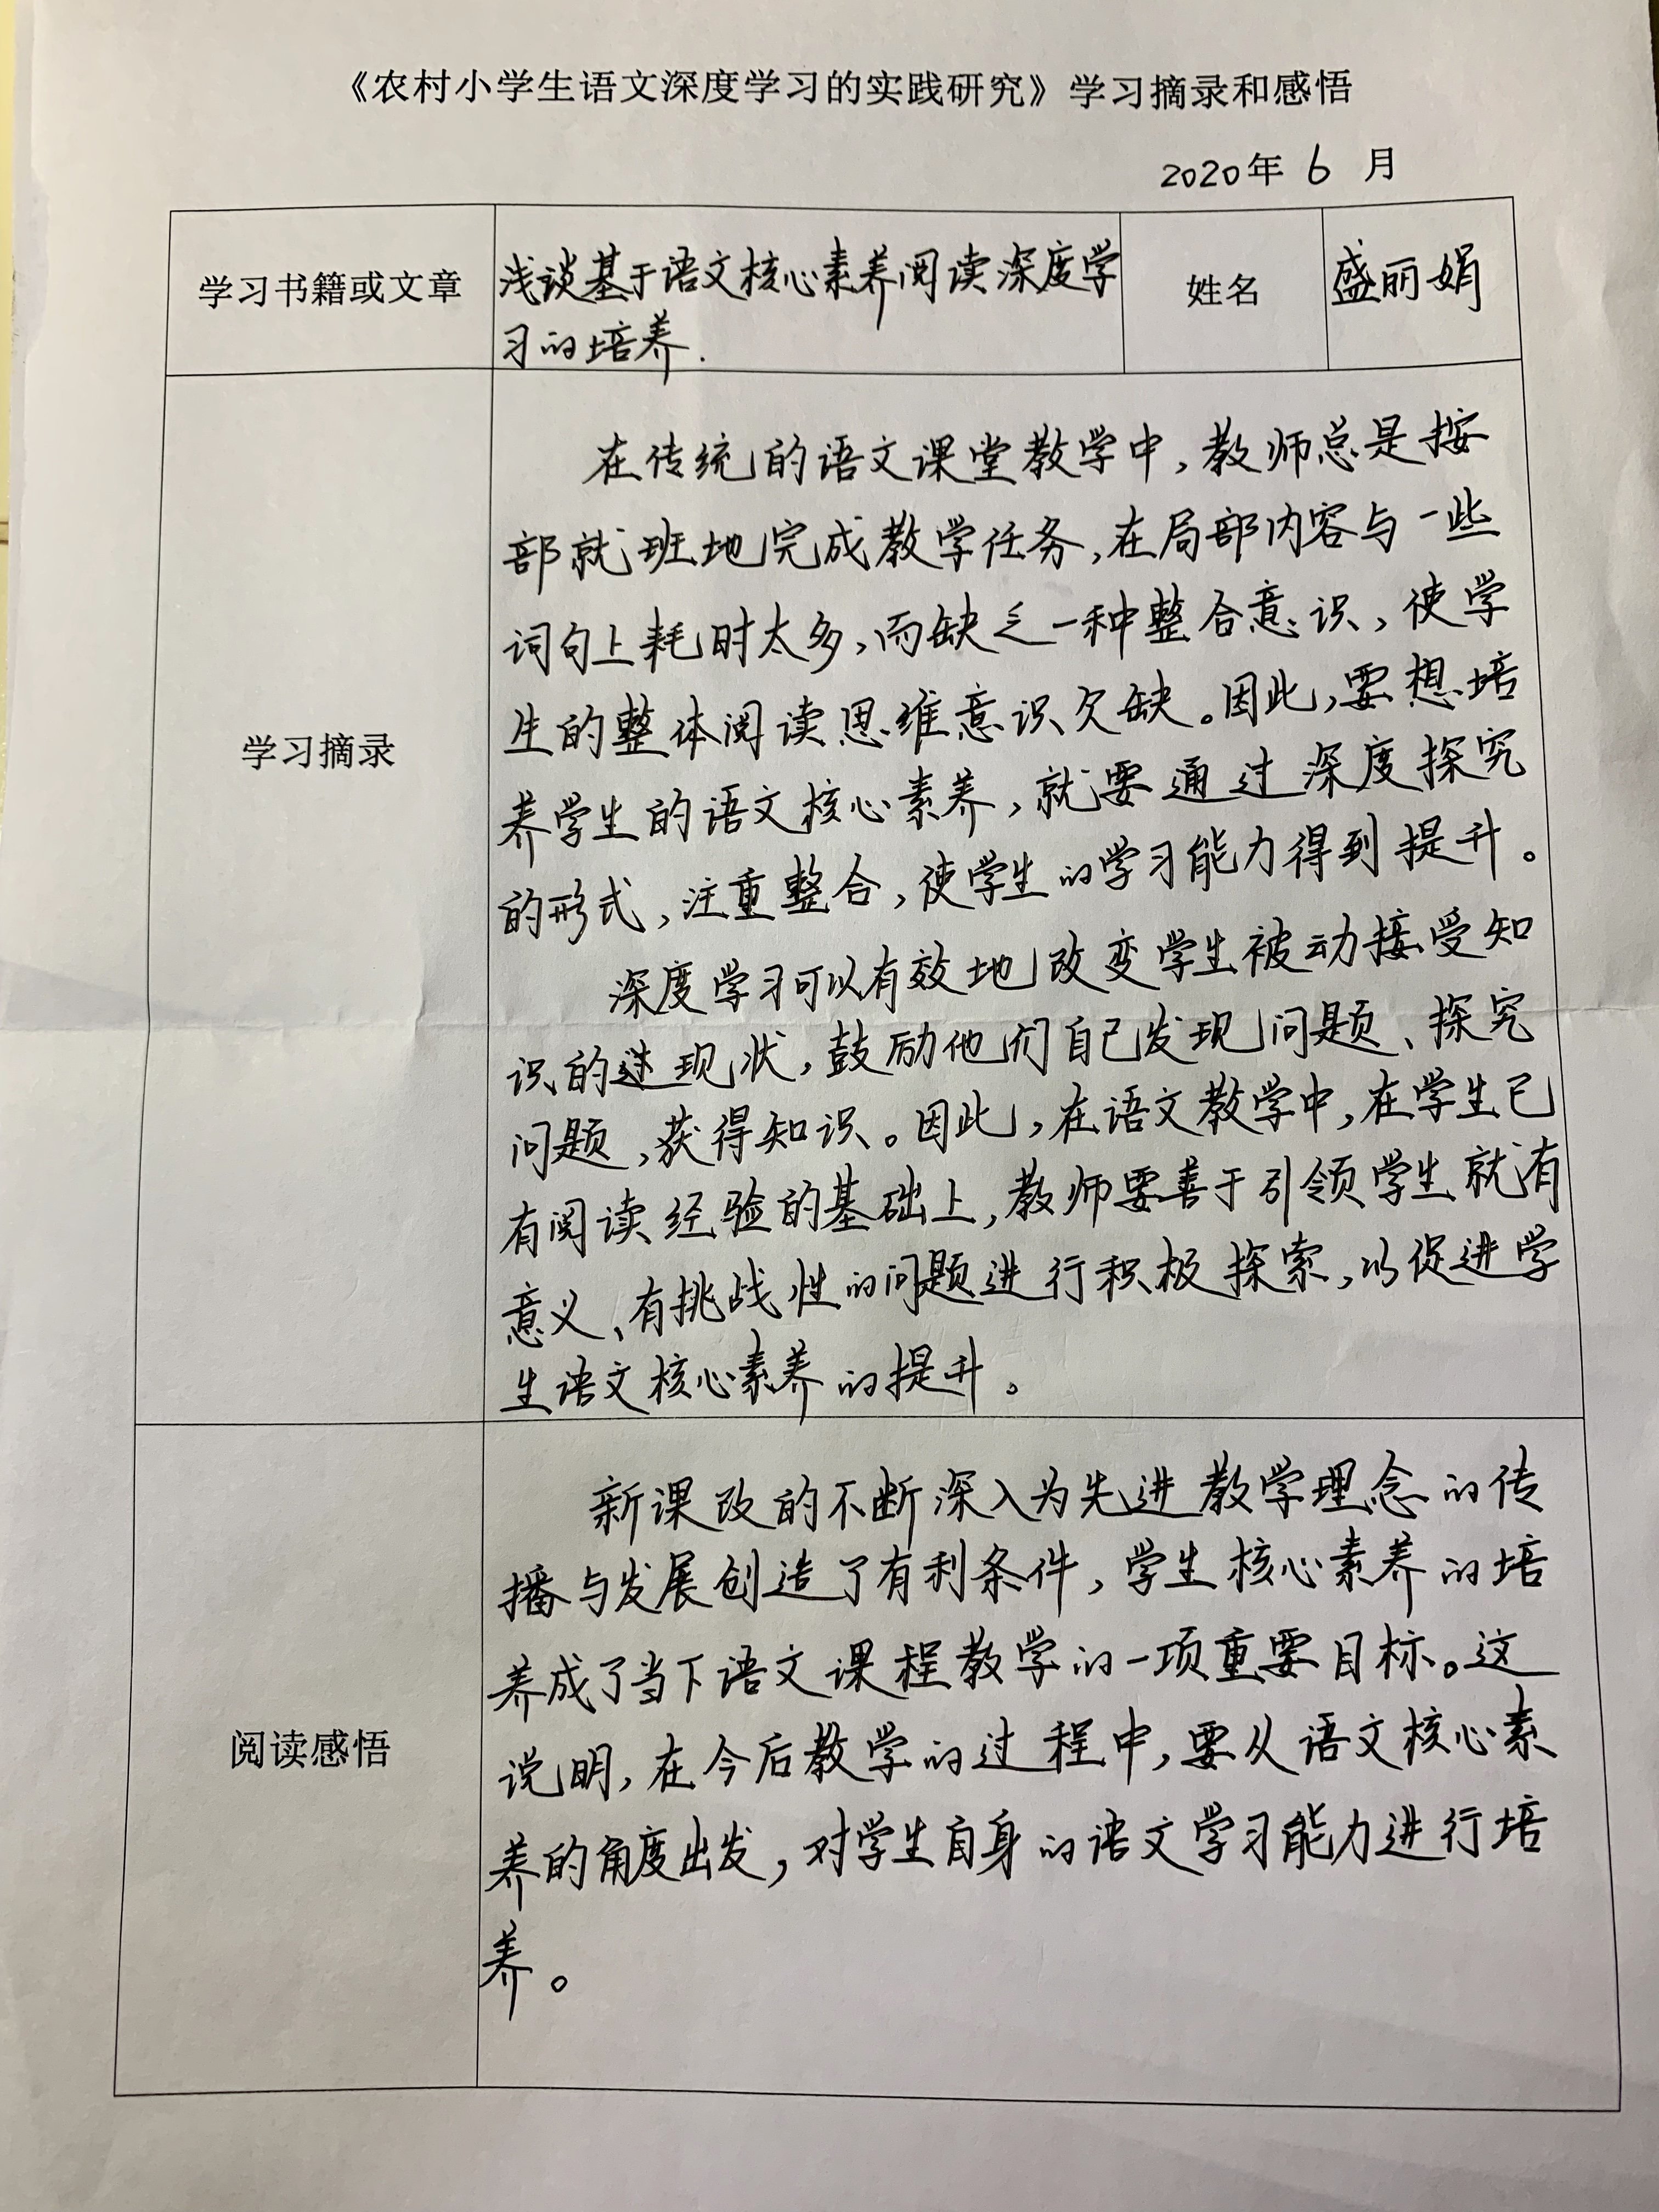 《农村小学生语文深度学习的实践研究》学习摘录和感悟
2020年 6 月
学习书籍或文章
浅谈基于语文核心素养阅读深度学
习的培养.
姓名
盛丽娟
学习摘录
在传统的语文课堂教学中,教师总是按
部就班地完成教学任务,在局部内容与一些
词句上耗时太多,而缺乏一种整合意识,使学
生的整体阅读思维意识欠缺。因此,要想培
养学生的语文核心素养,就要通过深度探究
的形式,注重整合,使学生的学习能力得到提升。
深度学习可以有效地改变学生被动接受知
识的现状,鼓励他们自己发现问题、探究
问题,获得知识。因此,在语文教学中,在学生已
有阅读经验的基础上,教师要善于引领学生就有
意义、有挑战性的问题进行积极探索,以促进学
生语文核心素养的提升。
阅读感悟
新课改的不断深入为先进教学理念的传
播与发展创造了有利条件,学生核心素养的培
养成了当下语文课程教学的一项重要目标。这
说明,在今后教学的过程中,要从语文核心素
养的角度出发,对学生自身的语文学习能力进行培
养。